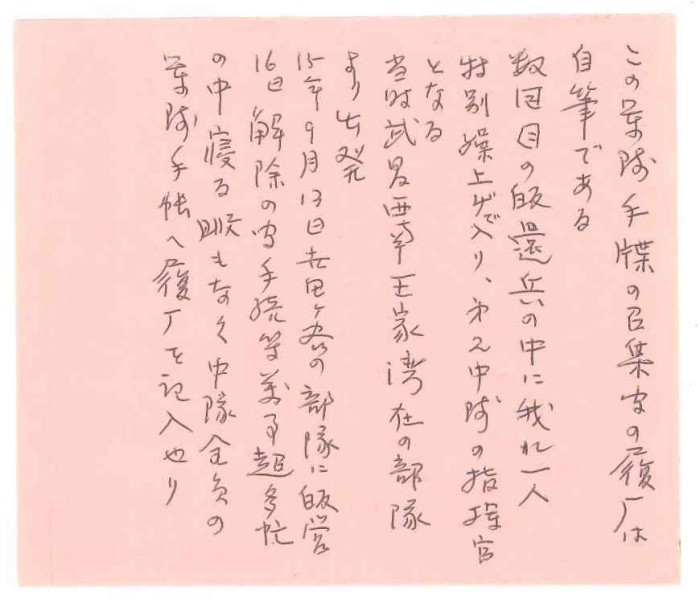 この軍隊手牒の召集字の履厂は
自筆である
数回目の皈還兵の中に我れ一人
特別繰上ゲで入り、オ乙中隊の指揮官
となる
当時武昌西南王家湾在の部隊
より出発
15年9月13日世田ヶ谷の部隊に皈営
16日解除の 手続等万事超多忙
の中寝る暇もなく中隊全員の
軍隊手帳へ履厂を記入せり